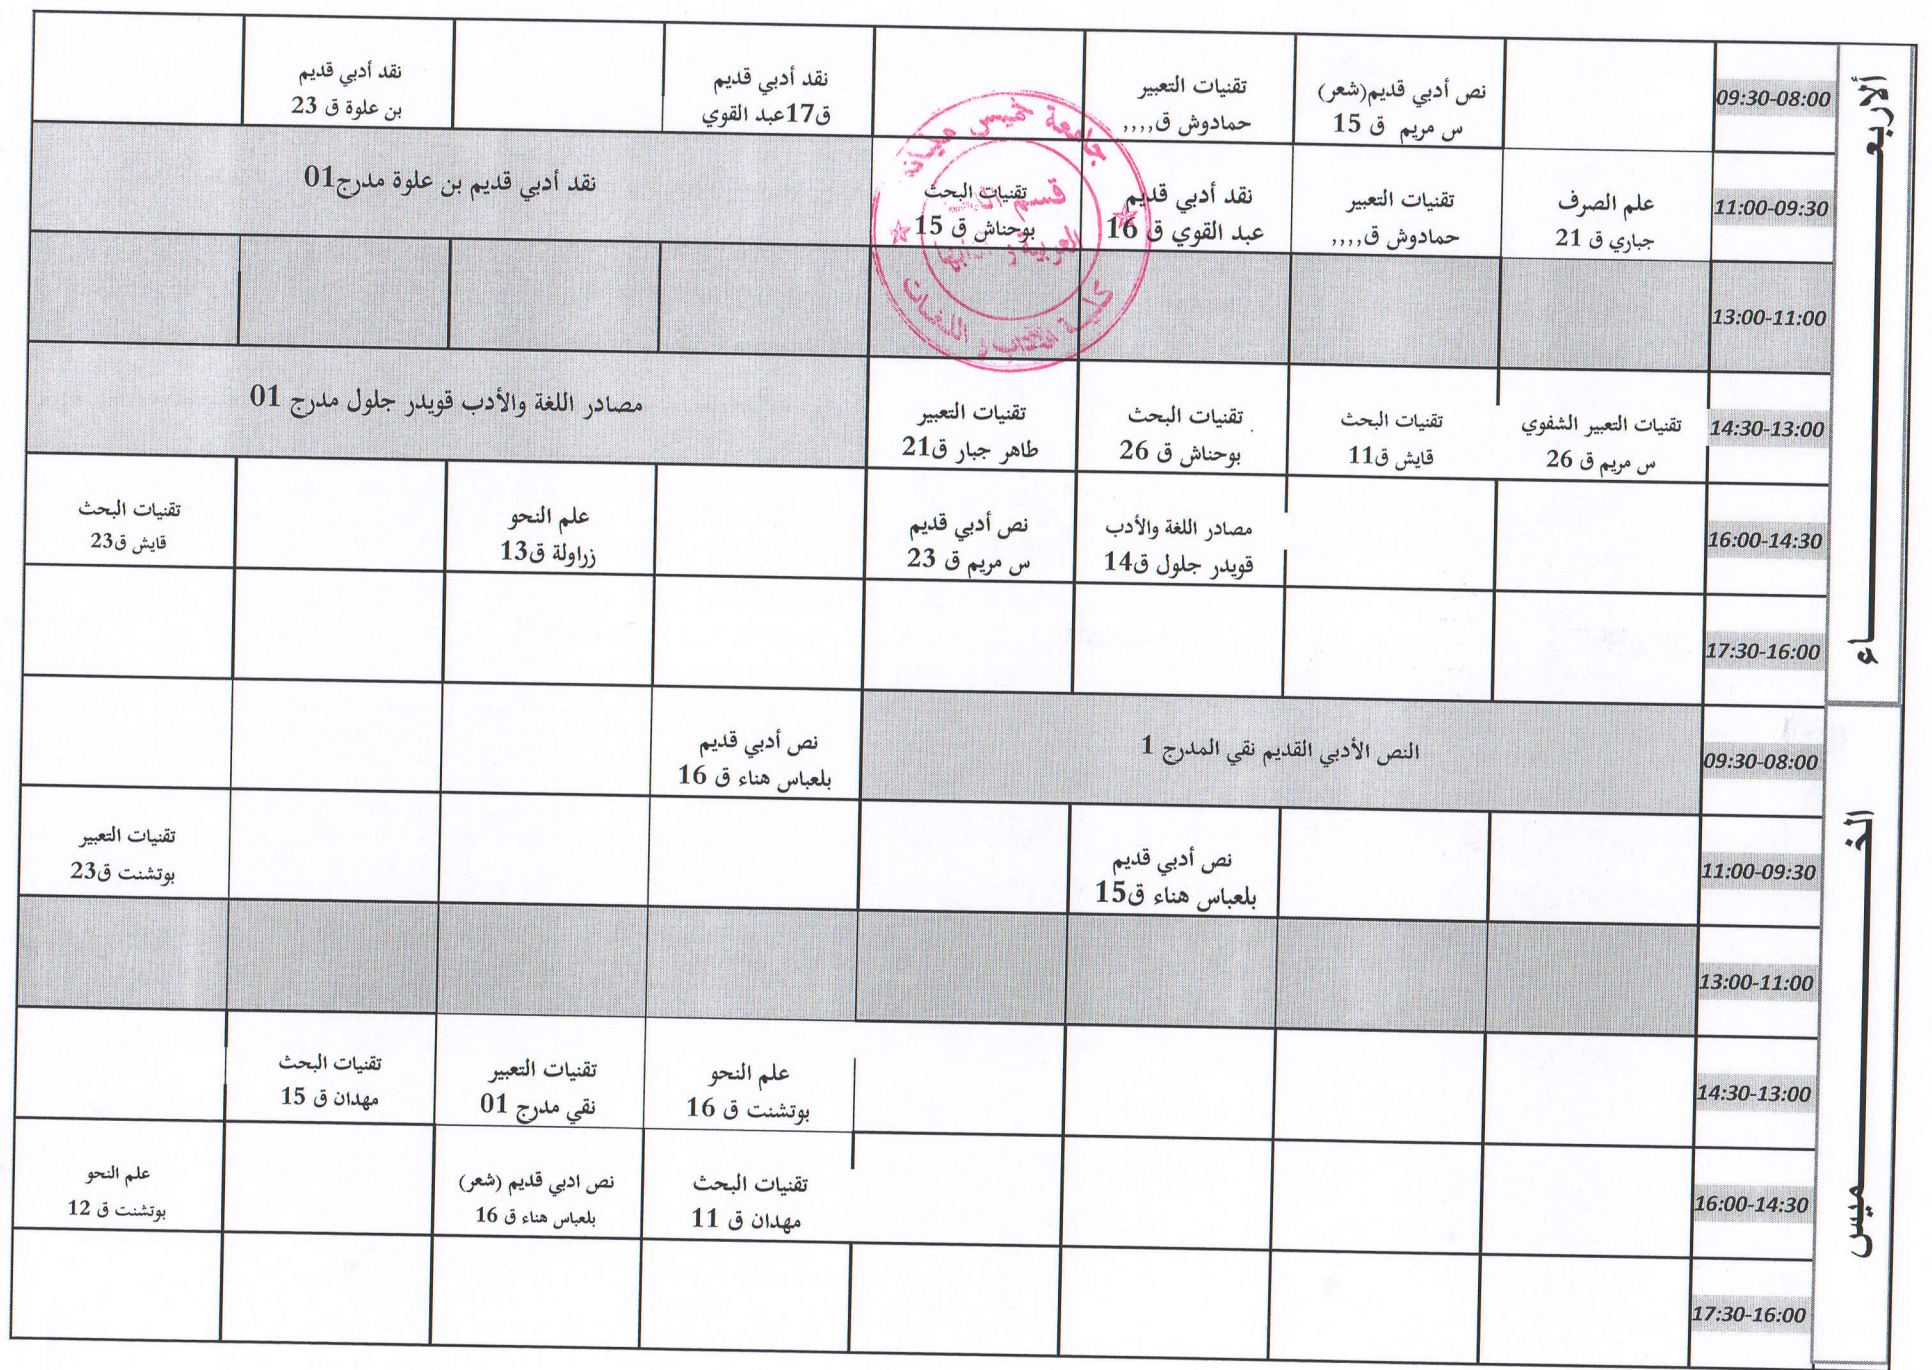 ألاربعـــاء
09:30-08:00
نص أدبي قديم(شعر)
س مريم ق 15
تقنيات التعبير
حمادوش ق,,,,
نقد أدبي قديم
ق17عبد القوي
نقد أدبي قديم
بن علوة ق 23
11:00-09:30
علم الصرف
جباري ق 21
تقنيات التعبير
حمادوش ق,,,,
نقد أدبي قديم
عبد القوي ق 16
تقنيات البحث
بوحناش ق 15
نقد أدبي قديم بن علوة مدرج01
13:00-11:00
14:30-13:00
تقنيات التعبير الشفوي
س مريم ق 26
تقنيات البحث
قايش ق11
تقنيات البحث
بوحناش ق 26
تقنيات التعبير
طاهر جبار ق21
مصادر اللغة والأدب قويدر جلول مدرج 01
16:00-14:30
مصادر اللغة والأدب
قويدر جلول ق14
نص أدبي قديم
س مريم ق 23
علم النحو
زراولة ق13
تقنيات البحث
قايش ق23
17:30-16:00
جامعة خميس مليانة
قسم اللغة
العربية و آدابها
كلية الآداب و اللغات
الخـــميس
09:30-08:00
النص الأدبي القديم نقي المدرج 1
نص أدبي قديم
بلعباس هناء ق 16
11:00-09:30
نص أدبي قديم
بلعباس هناء ق15
تقنيات التعبير
بوتشنت ق23
13:00-11:00
14:30-13:00
علم النحو
بوتشنت ق 16
تقنيات التعبير
نقي مدرج 01
تقنيات البحث
مهدان ق 15
16:00-14:30
تقنيات البحث
مهدان ق 11
نص ادبي قديم (شعر)
بلعباس هناء ق 16
علم النحو
بوتشنت ق 12
17:30-16:00